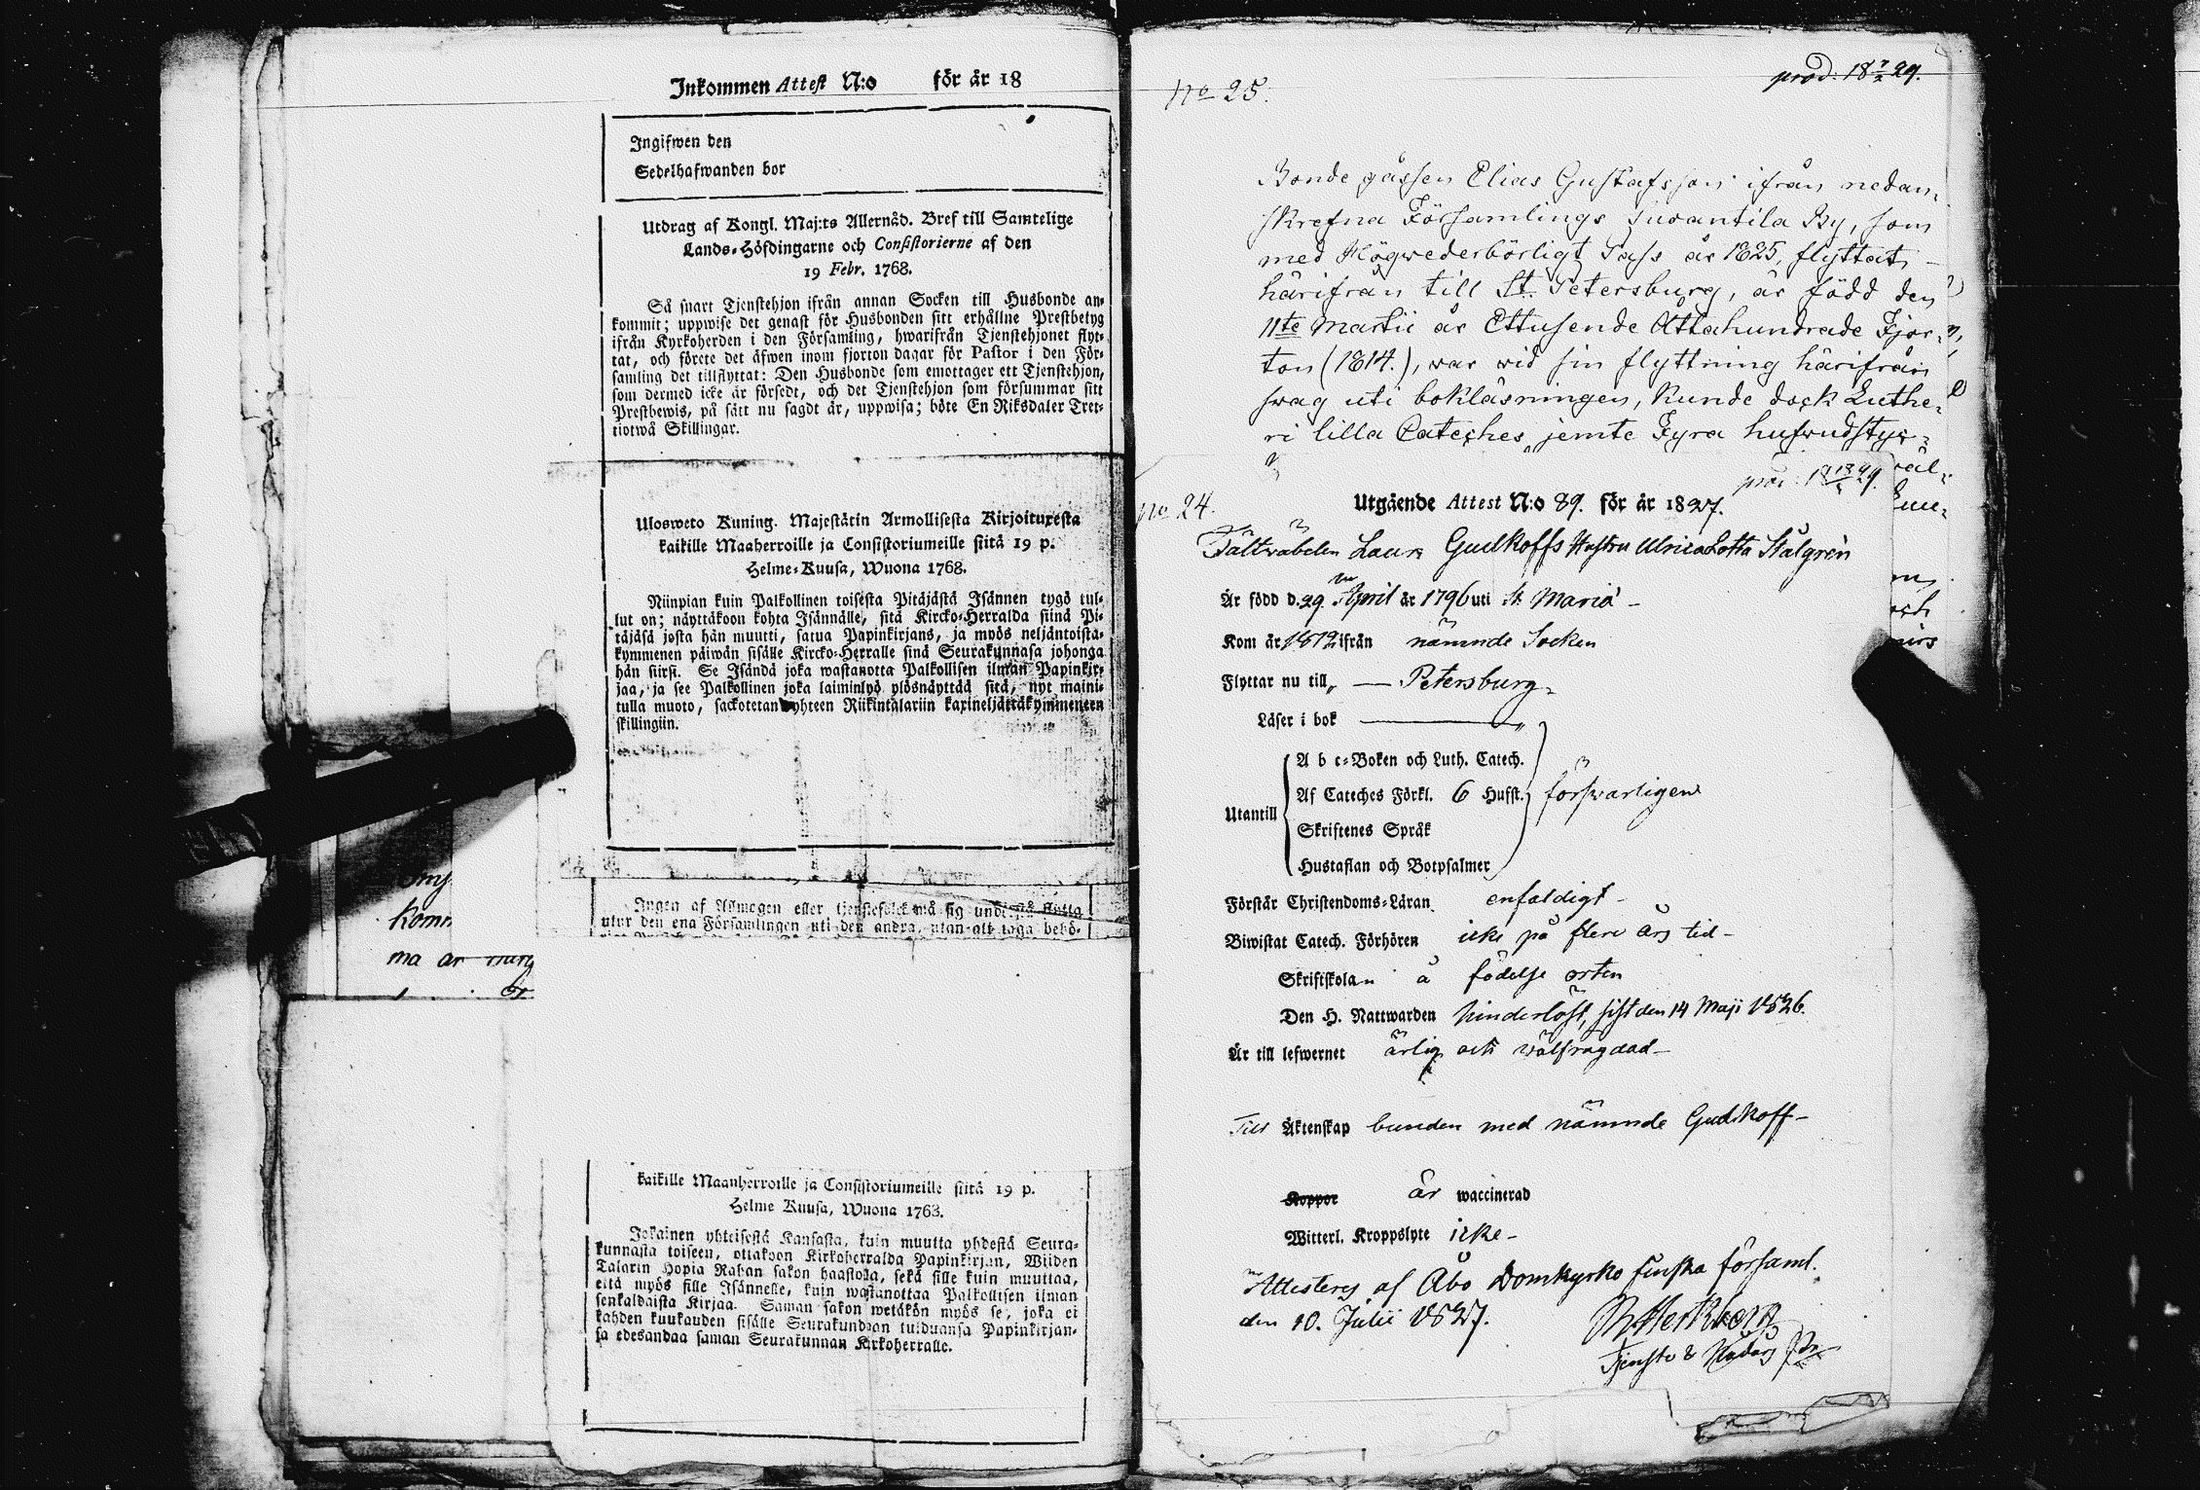 Inkommen Attest N:o för år 18
Ingifwen den
Sedelhafwanden bor
Utdrag af Kongl. Maj:ts Allernåd. Bref till Samtelige
Lands-Höfdingarne och Consistorierne af den
19 Febr. 1768.
Så snart Tjenstehjon ifrån annan Socken till Husbonde an-
kommit; uppwise det genast för Husbonden sitt erhållne Prestbetyg
ifrån Kyrkoherden i den Församling, hwarifrån Tjenstehjonet flyt-
tat, och förete det äfwen inom fjorton dagar för Pastor i den För-
samling det tillflyttat: Den Husbonde som emottager ett Tjenstehjon,
som dermed icke är försedt, och det Tjenstehjon som försummar sitt
Prestbewis, på sätt nu sagdt är, uppwisa; böte En Riksdaler Tret-
tiotwå Skillingar.
Ulosweto Kuning. Majestätin Armollisesta Kirjoituxesta
kaikille Maaherroille ja Consistoriumeille siitä 19 p.
Helme-Kuusa, Wuona 1768.
Niinpian kuin Palkollinen toisesta Pitäjästä Isännen tygö tul-
lut on; näyttäkoon kohta Isännälle, sitä Kircko-Herralda siinä Pi-
täjäsä josta hän muutti, saatua Papinkirjans, ja myös neljäntoista-
kymmenen päiwän sisälle Kircko-Herralle sinä Seurakunnasa johonga
hän siirsi. Se Isändä joka wastanotta Palkollisen ilman Papinkir-
jaa, ja see Palkollinen joka laiminlyö ylösnäyttää sitä, nyt maini-
tulla muoto, sackotetan yhteen Riikintalariin kaxineljättäkymmeneen
skillingiin.
Ingen af Allmogen eller tjenstefolck må sig understå flytta
utur den ena Församlingen uti den andra, utan att taga behö-
Komm
ma är
kaikille Maanherroille ja Consistoriumeille siitä 19 p.
Helme Kuusa, Wuona 1763.
Jokainen yhteisestä Kansasta, kuin muutta yhdestä Seura-
kunnasta toiseen, ottakoon Kirkoherralda Papinkirjan, Wiiden
Talarin Hopia Rahan sakon haastolla, sekä sille kuin muuttaa,
että myös sille Isännelle, kuin wastanottaa Palkollisen ilman
senkaldaista Kirjaa. Saman sakon wetäkön myös se, joka ei
kahden kuukauden sisälle Seurakundaan tulduansa Papinkirjan-
sa edesandaa saman Seurakunnan Kirkoherralle.
No 25.
prod: 18 29.
Bonde gåssen Elias Gustafsson ifrån nedan-
skrefna Församlings Suvantila By, som
med Högwederbörligt Pass år 1825, flyttat
härifrån till St. Petersburg, är född den
11te Martii år Ettusende Åttahundrade Fjor-
ton (1814.), war wid sin flyttning härifrån
swag uti bokläsningen, kunde dock Luthe-
ri lilla Cateches jemte Fyra hufwudstyc-
No 24.
Utgående Attest N:o 89. för år 1827.
Fältwäbelen Laur. Gudkoffs Hustru Ulrica Lotta Stålgrén
Är född d. 29 April år 1796 uti St. Mariæ
Kom år 1812 ifrån nämnde Socken
Flyttar nu till Petersburg
Läser i bok
A b c-Boken och Luth. Catech.
Af Cateches Förkl. 6 Hufst. försvarligen
Utantill
Skriftenes Språk
Hustaflan och Botpsalmer
Förstår Christendoms-Läran enfaldigt
Biwistat Catech. Förhören icke på flere års tid
Skriftskolan å födelse orten
Den H. Nattwarden hinderlöst, sist den 14 Maji 1826.
Är till lefwernet ärlig och wälfrägdad
Till Äktenskap bunden med nämnde Gudkoff
Koppor är waccinerad
Witterl. Kroppslyte icke
Attesteras af Åbo Domkyrko finska församl.
den 10. Julii 1827.